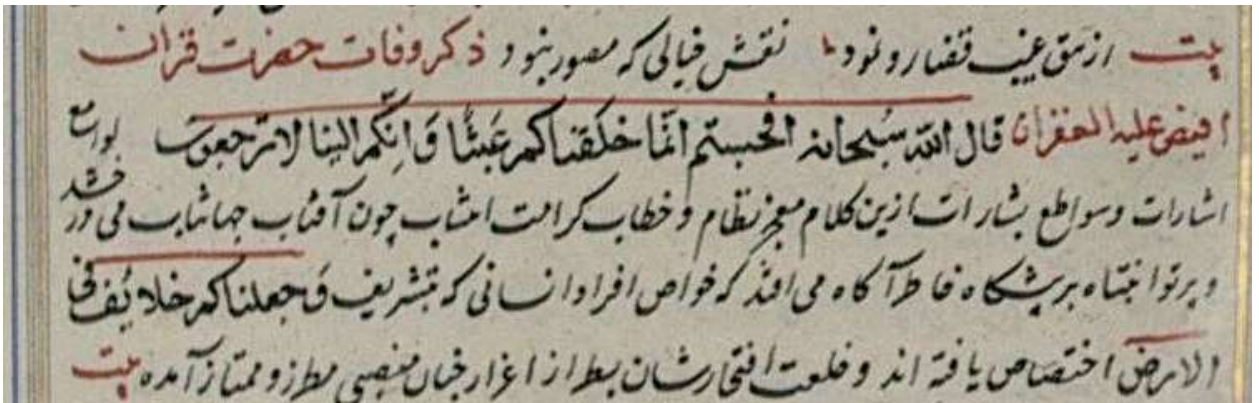 بیت از تتق غیب قضا رو نمود نقش خیالی که مصور نبود ذکر وفات حضرت قران
افیض علیه الغفران قال الله سبحانه افحسبتم انما خلقناکم عبثا و انکم الینا لاترجعون لوامع
اشارات و سواطع بشارات ازین کلام معجز نظام و خطاب کرامت انتساب چون آفتاب جهانتاب می درخشد
و پرتو انتباه بر پیشگاه خاطر آگاه می افتد که خواص افراد انسانی که بتشریف و جعلناکم خلایف فی
الارض اختصاص یافته اند و خلعت افتخارشان بطراز اعزاز چنان منصبی مطرز و ممتاز آمده بیت